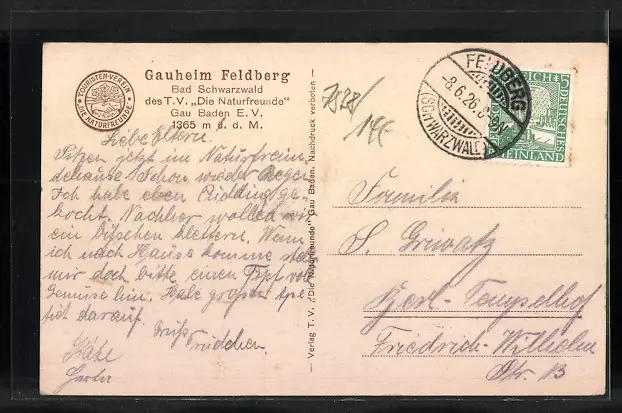 TOURISTEN-VEREIN
"DIE NATURFREUNDE"
Gauheim Feldberg
Bad Schwarzwald
des T. V. „Die Naturfreunde"
Gau Baden E. V.
1365 m ü. d. M.
Liebe Eltern.
Sitzen jetzt im Naturfreun-
dehause. Schon wieder Regen
Ich habe eben Pudding ge-
kocht. Nachher wollen wir
ein bißchen klettern. Wenn
ich nach Hause komme stell
mir doch bitte einen Topf voll
Gemüse hin. Habe großen Ape-
tit darauf.
Gruß Trudchen.
Käte
Verlag T. V. „Die Naturfreunde" Gau Baden. Nachdruck verboten
7828/
14E
FELDBERG
-8.6.26.
(SCHWARZWALD)
DEUTSCHES REICH
5
RHEINLAND
Familie
S.
Berl-Tempelhof
Friedrich-Wilhelm
Str. 13